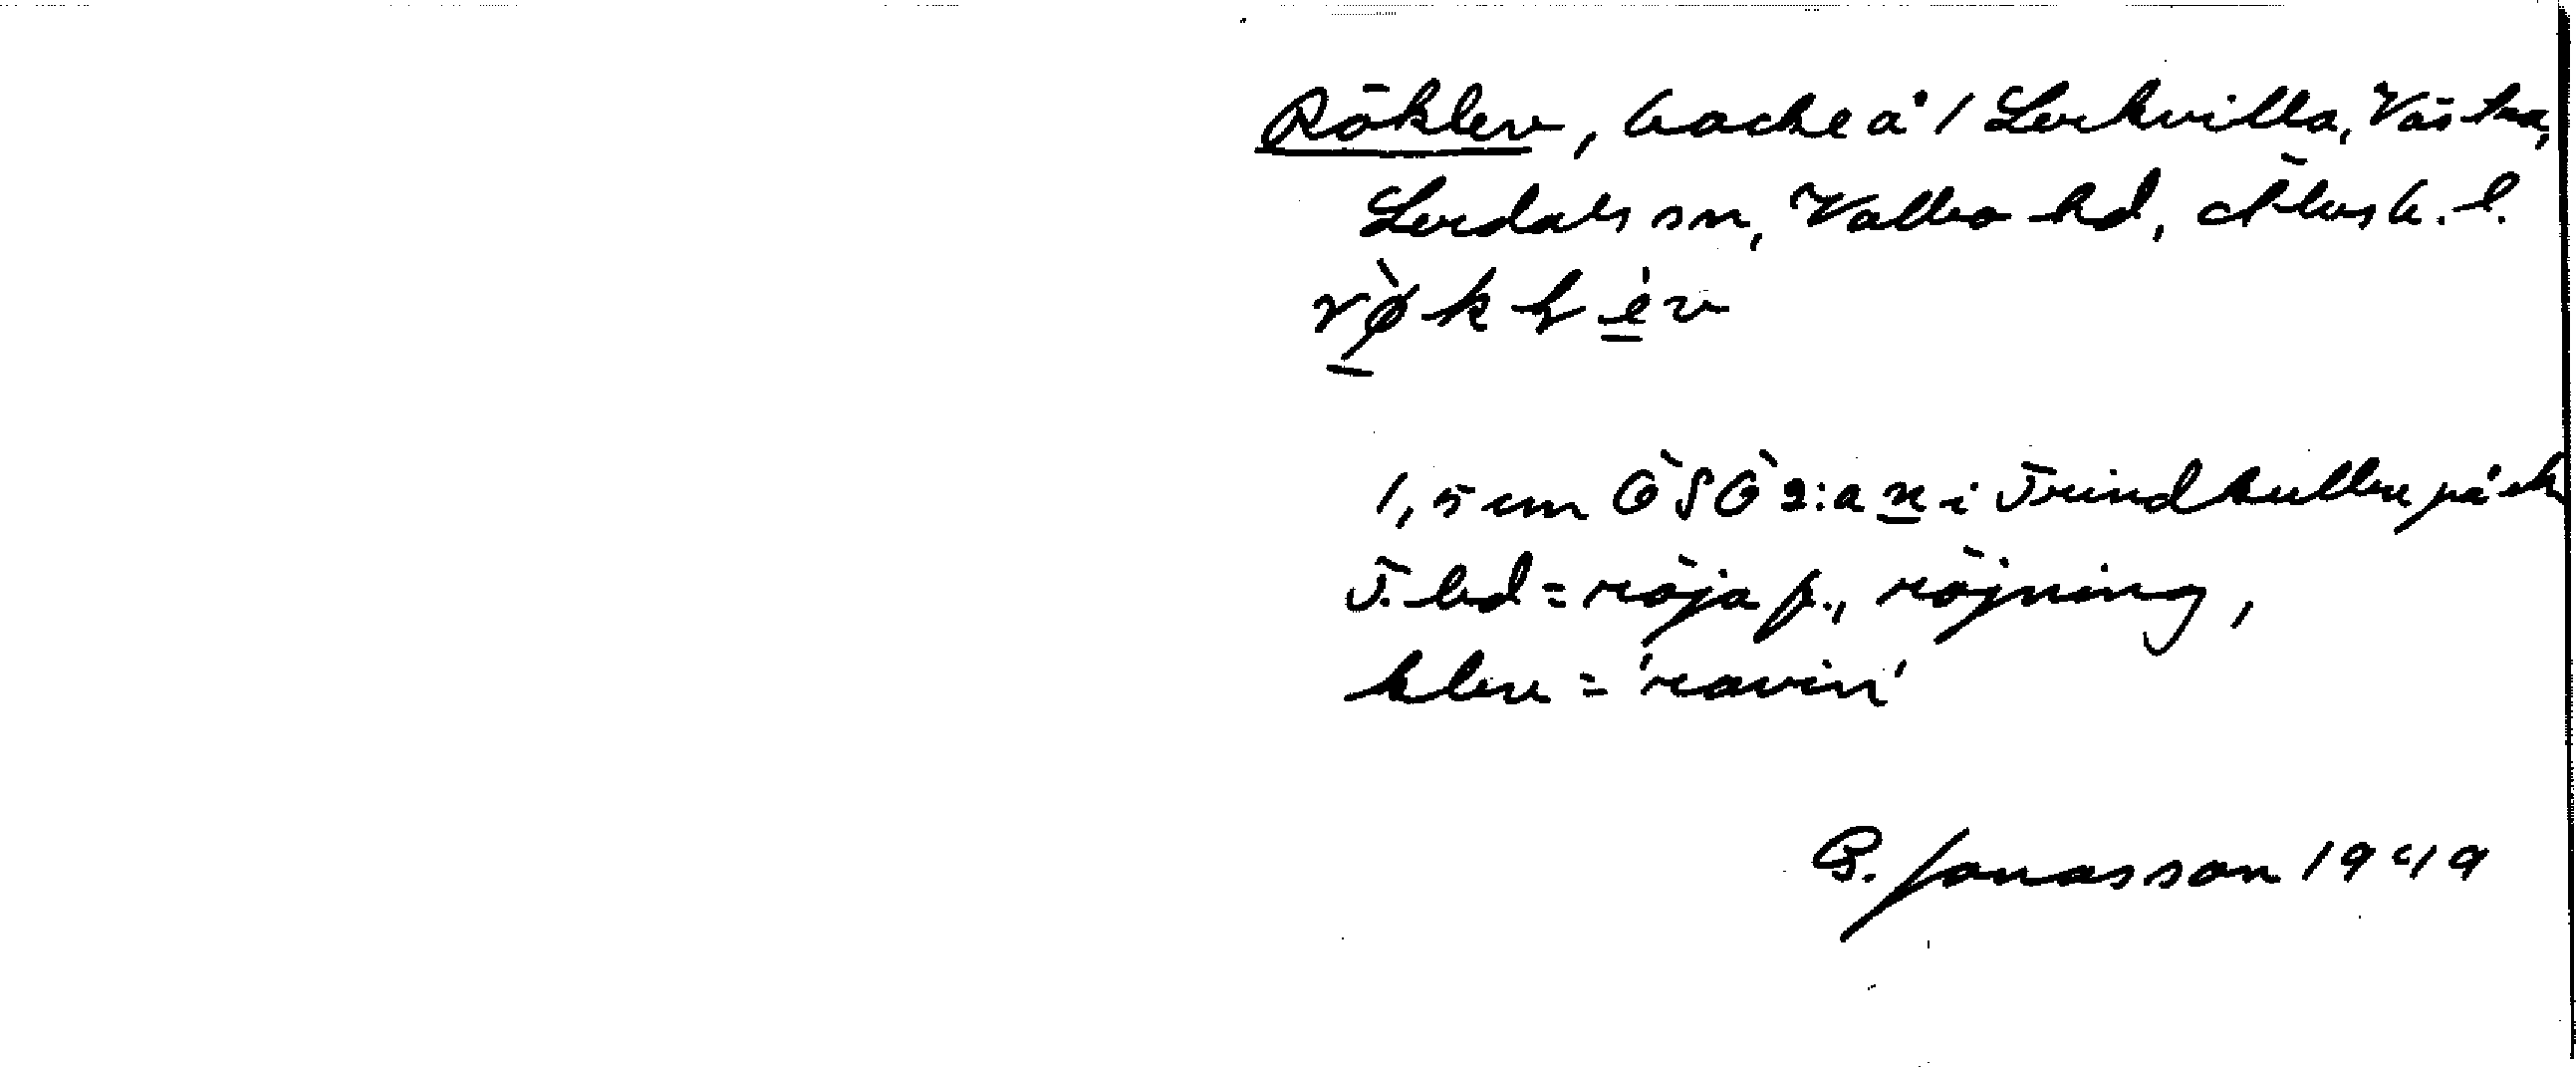 Röklev, backe å / Lerkvilla, Västra,
Lerdals sn, Valbo hd, Älvsb. l.
røkḷev
1,5 cm ÖSÖ 2:a n i Trindkullen på ek
F. led = röja f., röjning,
klev = 'ravin'
B. Jonasson 1949